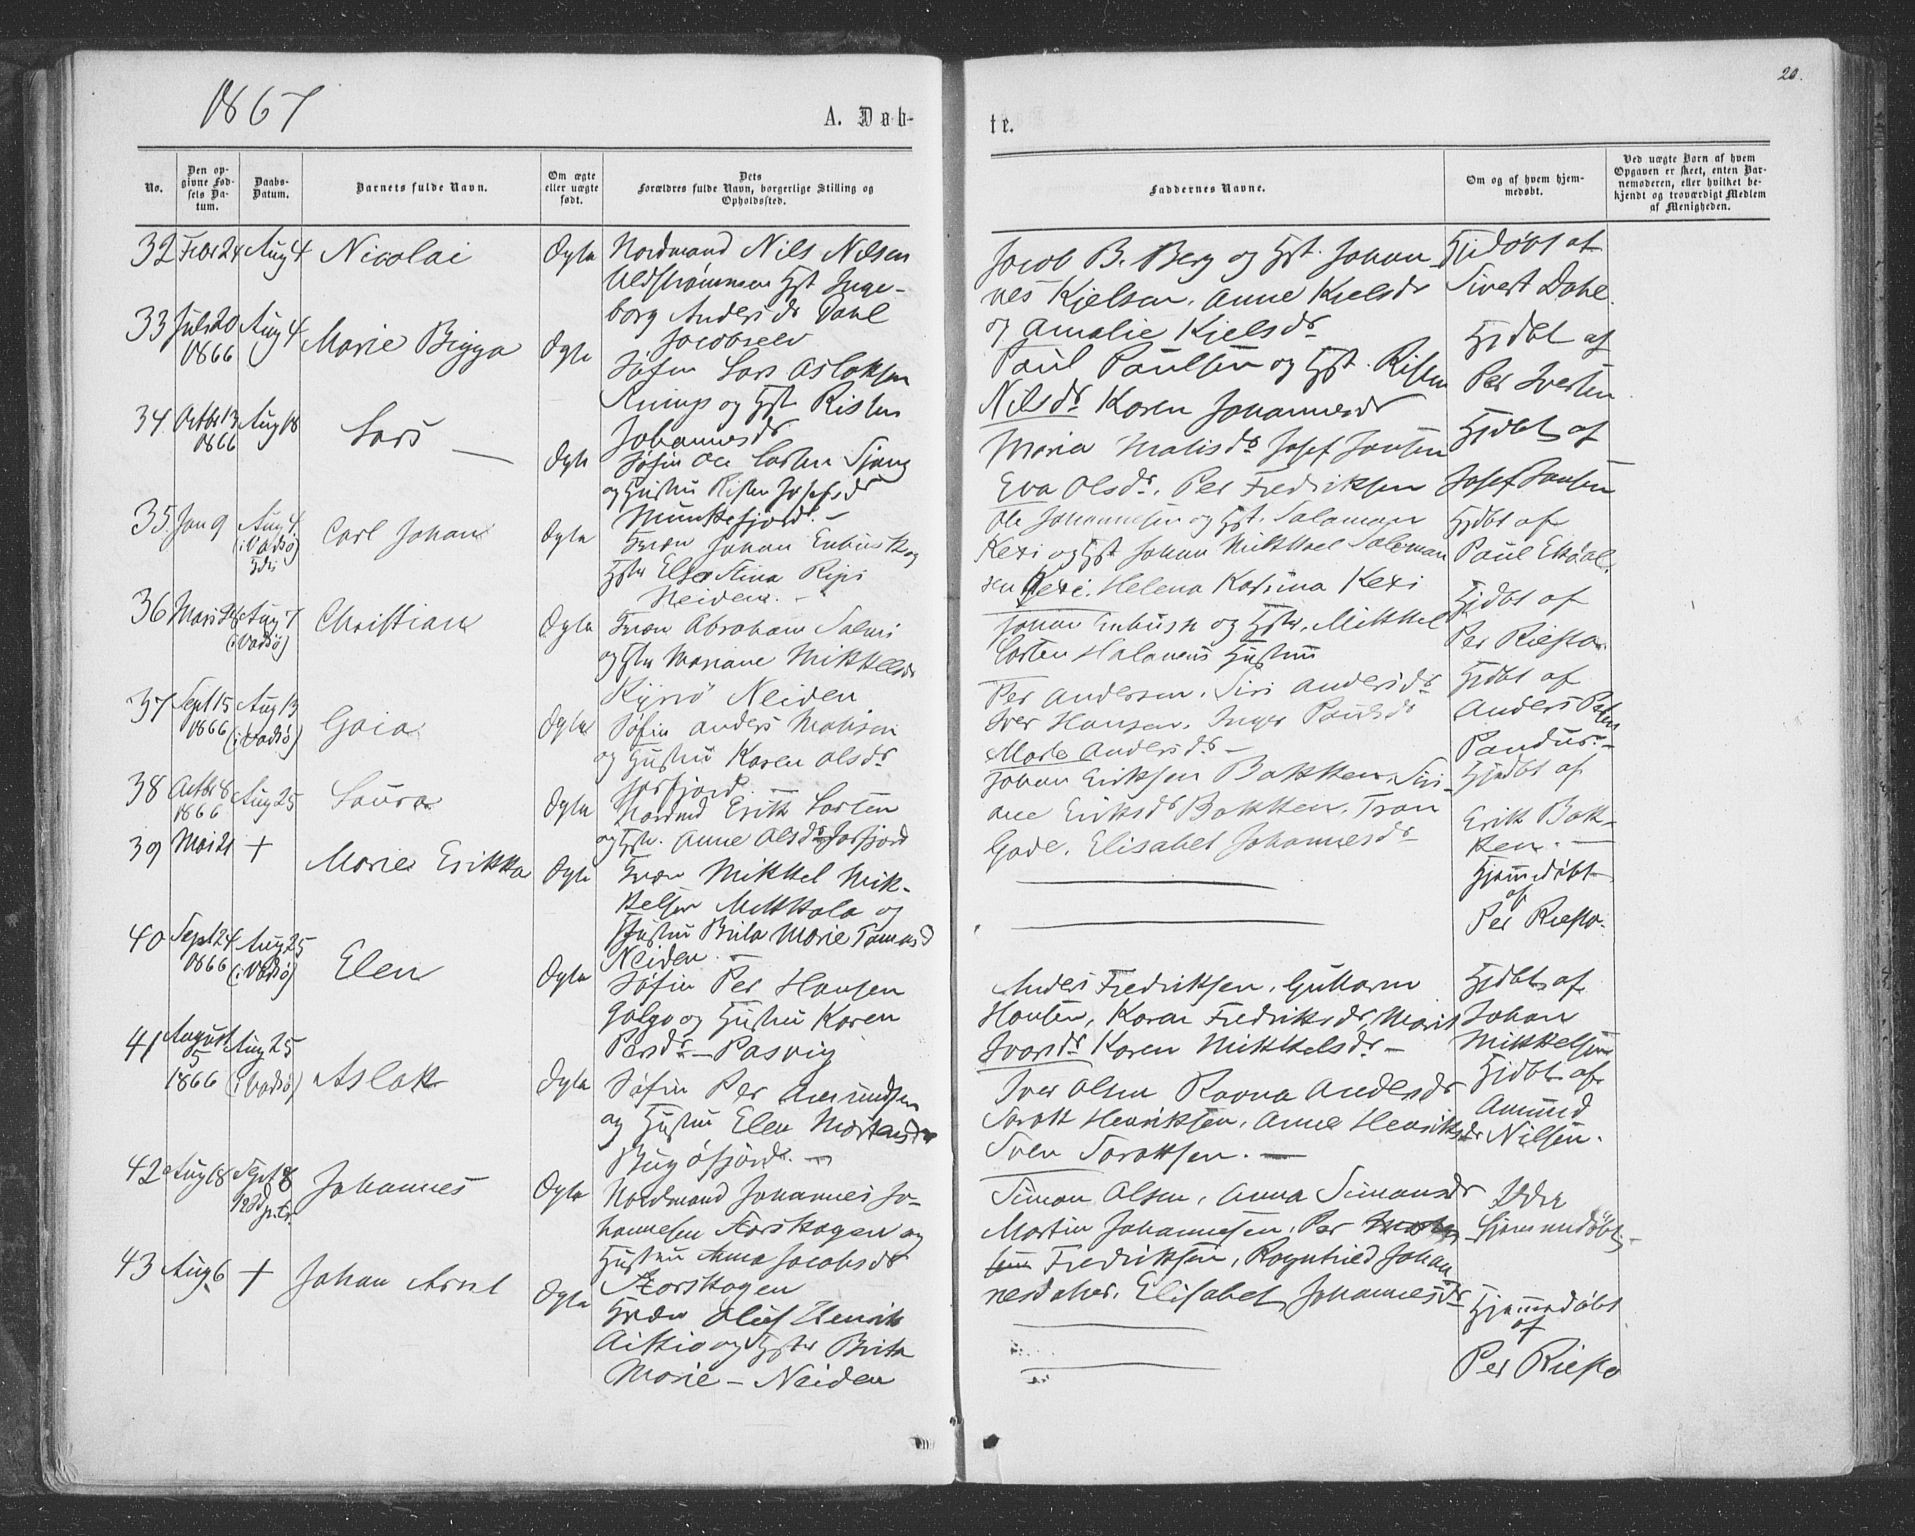 1867
A. Døb-
te.
20.
No.
Den op-
givne Fød-
sels Da-
tum.
Daabs-
Datum.
Barnets fulde Navn.
Om ægte
eller uægte
født.
Dets
Forældres fulde Navn, borgerlige Stilling og
Opholdssted.
Faddernes Navne.
Om og af hvem hjem-
medøbt.
Ved uægte Børn af hvem
Opgaven er skeet, enten Bar-
nemoderen, eller hvilket be-
kjendt og troværdigt Medlem
af Menigheden.
32 Febr 24 Aug 4 Nicolai Ægte
Nordmand Nils Nilsen
Hst Inge-
borg Andersdr Dahl
Jacobselv
Jacob B. Berg og Hst. Johan-
nes Kjelsen. Anne Kjelsdr
og Amalie Kjelsdr
Hjdøbt af
Sivert Dahl.
33 Juli 20
1866
Aug 4 Marie Bigga Ægte
Søfin Lars Aslaksen
og Hst Risten
Johannesdr
Paul Paulsen og Hst. Risten
Nilsdr Karen Johannesdr
Hjdbt af
Per Iversen
34. Octbr 13
1866
Aug 18 Lars — Ægte
Søfin Ole Larsen Sjang
og Hustru Risten Josefsdr
Munkefjord. —
Maria Matisdr Josef Jansen
Eva Olsdr. Per Fredriksen
Hjdbt af
Josef Jansen
35. Jan 9 Aug 4.
(i Vadsø)
Carl Johan Ægte
Kvæn Johan Enbusk og
Hstr Elsa Stina Ripi
Neiden. —
Ole Johannesen og Hst. Salaman
Kexi og Hst Johan Mikkael Saleman
sen Kexi. Helena Karima Kexi
Hjdbt af
Paul Ekdal.
36 Mars 28 Aug 7
(i Vadsø)
Christian Ægte
Kvæn Abraham Salmi
og Hstr Mariane Mikkelsdr
Neiden
Johan Enbusk og Hstr. Mikkel
Larsen Halonens Hustru
Hjdbt af
Per Riesto.
37 Sept 15
1866
Aug 13
(i Vadsø)
Gaia Ægte
Søfin Anders Mathisen
og Hustru Karen Olsdr
Jarfjord.
Per Andersen. Siri Andersdr
Iver Hansen. Inger Paulsdr
Marte Andersdr —
Hjdbt af
Anders Petersen
Pandur. —
38 Octbr 8
1866
Aug 25 Laura Ægte
Nordmd Erik Larsen
og Hstr. Anne Olsdr Jarfjord
Johan Eriksen Bakken. Siri-
ane Eriksdr Bakken. Tron
Gade. Elisabet Johannesdr
Hjdbt af
Erik Bak-
ken. —
39 Mai 21 + Marie Erikka Ægte
Kvæn Mikkel Mik-
kelsen Mikkola og
Hustru Brita Marie Tomasd
Neiden. —
Hjemmedøbt
af
Per Riesto.
40 Sept 24
1866
Aug 25
(i Vadsø)
Elen Ægte
Søfin Per Hansen
Galgo og Hustru Karen
Persdr — Pasvig
Anders Fredriksen. Guttorm
Hansen, Karen Fredriksdr, Marit
Ivarsdr Karen Mikkelsdr —
Hjdbt af
Johan
Mikkelsen
41 August
5
1866
Aug 25
(i Vadsø)
Aslak Ægte
Søfin Per Amundsen
og Hustru Elen Mortensdr
Bugøfjord. —
Iver Olsen Ravna Andersdr
Sarak Henriksen, Anne Henriksdr
Sven Saraksen. —
Hjdbt af
Amund
Nilsen.
42 Aug 18 Sept 8 Johannes Ægte
Nordmand Johannes Jo-
hannesen Storskogen og
Hustru Anna Jacobsdr
Storskogen
Simon Olsen, Anna Simonsdr
Martin Johannesen, Per
Fredriksen, Rognhild Johan
nesdatter. Elisabet Johannesdr
Ikke
hjemmedøbt —
43 Aug 6 + Johan Arvel Ægte
Kvæn Oluf Henrik
Aikkio og Hstr Brita
Marie — Neiden
Hjemmedøbt
af
Per Riesto